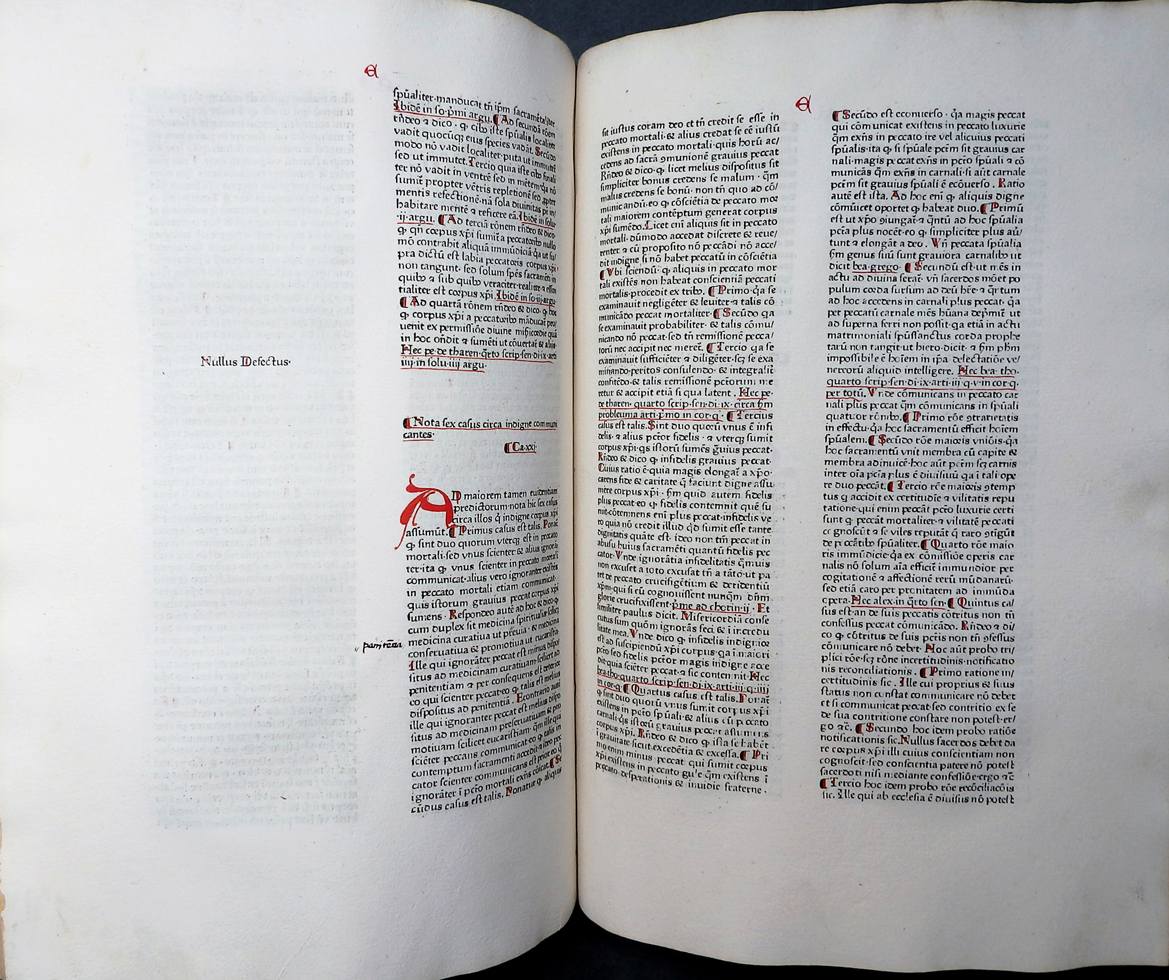 Nullus Defectus·
sp̄ualiter·manducat tn̄ ip̄m sacramētaliter
Ibidē in so·p̄mi argu·¶Ad secundā rōem
rn̄deo ⁊ dico· ꝙ cibꝰ iste spūalis localiter
vadit quocūqꝫ eius species vadūt. Secūdo
modo nō vadit localiter·puta ut immutetꝰ
sed ut immutet. Tercio quia iste cibꝰ finali
ter nō vadit in ventrē sed in mētem·
sumit̉ propter vētris repletionē sed ꝓpter
mentis refectionē·nā sola diuinitas
habitare mentē ⁊ reficere
·ij·argu·¶Ad terciā rōnem rn̄deo ⁊ dico·
ꝙ qn̄ corpus xp̄i sumit̉ a peccatoribꝰ nullo
mō contrahit aliquā immūdiciā
pra dictū est labia peccatoris corpus xp̄i
non tangunt·sed solum sp̄es sacramēti
quibꝰ ⁊ sub quibꝰ veraciter·realiter ⁊ essen
tialiter est corpus xp̄i. Ibidē in so·iij·argu·
¶Ad quartā rōnem rn̄deo ⁊ dico· ꝙ hoc
ꝙ corpus xp̄i a peccatoribꝰ māducat̉
uenit ex permissiōe diuine
in hoc on̄dit ⁊ sumēti ut cōuertat̉ ⁊
Hec pe·de tharen·q̄rto scrip·sen·di·ix·arti
iiij·in solu·iiij argu·
¶Nota sex casus circa indigne communi
cantes·
¶Ca·xxj·
AD maiorem tamen euidentiam
predictorum·nota hic sex casus
circa illos q̄ indigne corpus xp̄i
assumūt.¶Primus casus est talis. Ponat̉
ꝙ sint duo quorum vterqꝫ est in peccato
mortali·sed vnus scienter ⁊ alius ignorā
ter·ita ꝙ vnus scienter in peccato mortali
communicat·alius vero ignoranter existēs
in peccato mortali etiam communicat·
quis istorum grauius peccat corpus xp̄i
sumens· Respondeo autē ad hoc ⁊ dico ꝙ
cum duplex sit medicina spiritualis
medicina curatiua ut pn̄ia· ⁊ medicina
conseruatiua ⁊ promotiua ut eucaristia·
Ille qui ignorāter peccat est minus dispo
situs ad medicinam curatiuam scilicet ad
penitentiam ⁊ per consequens est deterior
eo qui scienter peccat·eo ꝙ talis est melius
dispositus ad penitentiā. Econtrario autē
ille qui ignoranter peccat est melius dispo
situs ad medicinam preseruatiuam ⁊ pro
motiuam scilicet eucaristiam· q̄m ille qui
sciēter peccans communicat·eo ꝙ talis
contemptum sacramenti accedit
cator scienter communicans est peior eo qui
ignorāter ī pctō mortali exn̄s cōicat.¶Se
cūdus casus est talis. Ponatur ꝙ aliquis
sit iustus coram deo et tn̄ credit se esse in
peccato mortali· ⁊ alius credat se eē iustū
existens in peccato mortali·quis horū ac/
cedens ad sacrā ꝯmunionē grauius peccat
Rn̄deo ⁊ dico·ꝙ licet melius dispositus sit
simpliciter bonus credens se malum · q̄m
malus credens se bonū· non tn̄ quo ad cō/
municandū·eo ꝙ cōsciētia de peccato moꝛ
tali maiorem contēptum generat corpus
xp̄i sumēdo. Licet eni aliquis sit in peccato
mortali· dūmodo accedat discrete ⁊ reue/
renter ⁊ cū proposito nō peccādi nō acce/
dit indigne si nō habet peccatū in cōsciētia
¶Vbi sciendū·ꝙ aliquis in peccato mor
tali existēs non habeat conscientiā peccati
mortalis·procedit ex tribꝰ.¶Primo·q̄a se
examinauit negligēter ⁊ leuiter·⁊ talis cō
municādo peccat mortaliter·¶Secūdo q̄a
se examinauit probabiliter· ⁊ talis cōmu/
nicando nō peccat·sed tn̄ remissionē pecca/
torū nec accipit nec meret̉. ¶Tercio q̄a se
examinauit sufficiēter ⁊ diligēter·scꝫ se exa
minādo·peritos consulendo· ⁊ integraliť
confitēdo·⁊ talis remissionē pctōrum me
retur ⁊ accipit etiā si qua latent. Hec pe·
de tharen· quarto scrip·sen·di·ix·circa s̄m
probleuma arti·p̄mo in cor·q̄· ¶Tercius
casus est talis. Sint duo quorū vnus ē infi
delis·⁊ alius pctor fidelis· ⁊ vterqꝫ sumit
corpus xp̄i·qs istorū sumēs grauius peccat·
Rn̄deo ⁊ dico ꝙ infidelis grauius peccat·
Cuius ratio ē·quia magis elongat̉ a xp̄o·
carens fide ⁊ caritate q̄ faciunt digne assu
mere corpus xp̄i· s̄m quid autem fidelis
plus peccat·eo ꝙ fidelis contemnit que su
mit·cōtemnens eni plus peccat·infidelis ve
ro quia nō credit illud qd sumit esse tante
dignitatis quāte est· ideo non tm̄ peccat in
abusu huius sacramēti quantū fidelis pec
cator. Vnde ignorātia infidelitatis q̄muis
non excuset a toto excusat tn̄ a tāto·ut pa
tet de peccato crucifigētium ⁊ deridentiū
xp̄m·qui si eū cognouissent nunq̄m dn̄m
glorie crucifixissent·p̄me ad chorin·ij· Et
similiter paulus dicit. Misericordiā conse
cutus sum quōm ignorās feci ⁊ ī incredu
litate mea. Vnde dico ꝙ infidelis indignior
est ad suscipiendū xp̄i corpus·q̄a in maiori
pctō·sed fidelis pctor magis indigne acce
dit·quia sciēter peccat·⁊ sic contennit· Hec
bea·tho·quarto scrip·sen·di·ix·arti·iij·q·iiij
in cor·q̄·¶Quartus casus est talis. Ponat̉
ꝙ sint duo quorū vnus sumit corpus xp̄i
existens in pctō spūali·⁊ alius cū peccato
carnali·q̄s istorū grauius peccat assumens
corpus xp̄i. Rn̄deo ⁊ dico ꝙ ista se habēt
ī grauitate sicut·excedētia ⁊ excessa.¶Pri
mo enim minus peccat qui sumit corpus
xp̄i existens in peccato gule q̄m existens ī
peccato desperationis ⁊ inuidie fraterne·
¶Secūdo est econuerso · q̄a magis peccat
qui cōmunicat existens in peccato luxurie
q̄m exn̄s in peccato ire vel alicuius peccati
spūalis·ita ꝙ si spūale pctm̄ sit grauius car
nali·magis peccat exn̄s in pctō spūali ⁊ cō
municās q̄m exn̄s in carnali·si aūt carnale
pctm̄ sit grauius spūali ē ecōuerso . Ratio
autē est ista. Ad hoc eni ꝙ aliquis digne
cōmūicet oportet ꝙ habeat duo.¶Primū
est ut xp̄o ꝯiungat̉·⁊ q̄ntū ad hoc spūalia
pctā plus nocēt·eo ꝙ simpliciter plus aū/
tunt ⁊ elongāt a deo . Vn̄ peccata spūalia
s̄m genus suū sunt grauiora carnalibꝰ ut
dicit bea·grego· ¶Secundū est·ut mēs in
actu ad diuina ferat̉· vn̄ sacerdos mōet po
pulum corda sursum ad deū hr̄e·⁊ q̄rtum
ad hoc accedens in carnali plus peccat· q̄a
per peccatū carnale mēs hūana deprimit̉ ut
ad superna ferri non possit·q̄a etiā in actu
matrimoniali spūssanctus corda prophe
tarū non tangit ut hiero·dicit · ⁊ s̄m ph̄m
impossibile ē hoīem in ip̄a delectatiōe ve/
nerorū aliquid intelligere. Hec bea·tho·
quarto scrip·sen·di·ix·arti·iij·q·v·in cor·q·
per totū. Vnde cōmunicans in peccato car
nali plus peccat q̄m cōmunicans in spūali
quatuor rōibꝰ.¶Primo rōe ꝯtrarietatis
in effectu·q̄a hoc sacramentū efficit hoīem
spūalem.¶Secūdo rōe maioris vniōis·q̄a
hoc sacramentū vnit membra cū capite ⁊
membra adinuicē·hoc aūt pctm̄ scꝫ carnis
inter oīa pctā plus ē diuisiuū·q̄a ī tali ope
re duo peccāt.¶Tercio rōe maioris ꝯtemp
tus q̄ accidit ex certitudīe ⁊ vilitate repu
tatione·qui enim peccāt pctō luxurie certi
sunt ꝙ peccāt mortaliter·⁊ vilitatē peccati
cognoscūt ⁊ se viles reputāt q̄ raro ꝯtigūt
de p̄ccatis spūalibꝰ.¶Quarto rōe maio
ris immūdicie·q̄a ex cōmissiōe operis car
nalis nō solum aīa efficit̉ immundior per
cogitationē ⁊ affectionē rerū mūdanarū·
sed etiā caro per pronitatem ad immunda
opera. Hec alex·in q̄rto sen·¶Quintus ca/
sus est·an de suis peccatis cōtritus non tn̄
confessus peccat cōmunicādo. Rn̄deo ⁊ di/
co ꝙ cōtritus de suis pctīs non tn̄ ꝯfessus
cōmunicare nō debet· Hoc aūt probo tri/
plici rōe·scꝫ rōne incertitudinis·notificatio
nis reconciliationis.¶Primo ratione in/
certitudinis sic. Ille cui proprius ⁊ suus
status non constat communicare nō debet
et si communicat peccat·sed contritio ex se
de sua contritione constare non potest·er/
go ⁊c̄.¶Secundo hoc idem probo ratiōe
notificationis sic. Nullus sacerdos debet da
re corpus xp̄i illi cuius conscientiam non
cognoscit·sed conscientia patere nō potest
sacerdoti nisi mediante confessiōe·ergo ⁊c̄
¶Tercio hoc idem probo rōe recōciliacōis
sic. Ille qui ab ecclesia ē diuisus nō potest